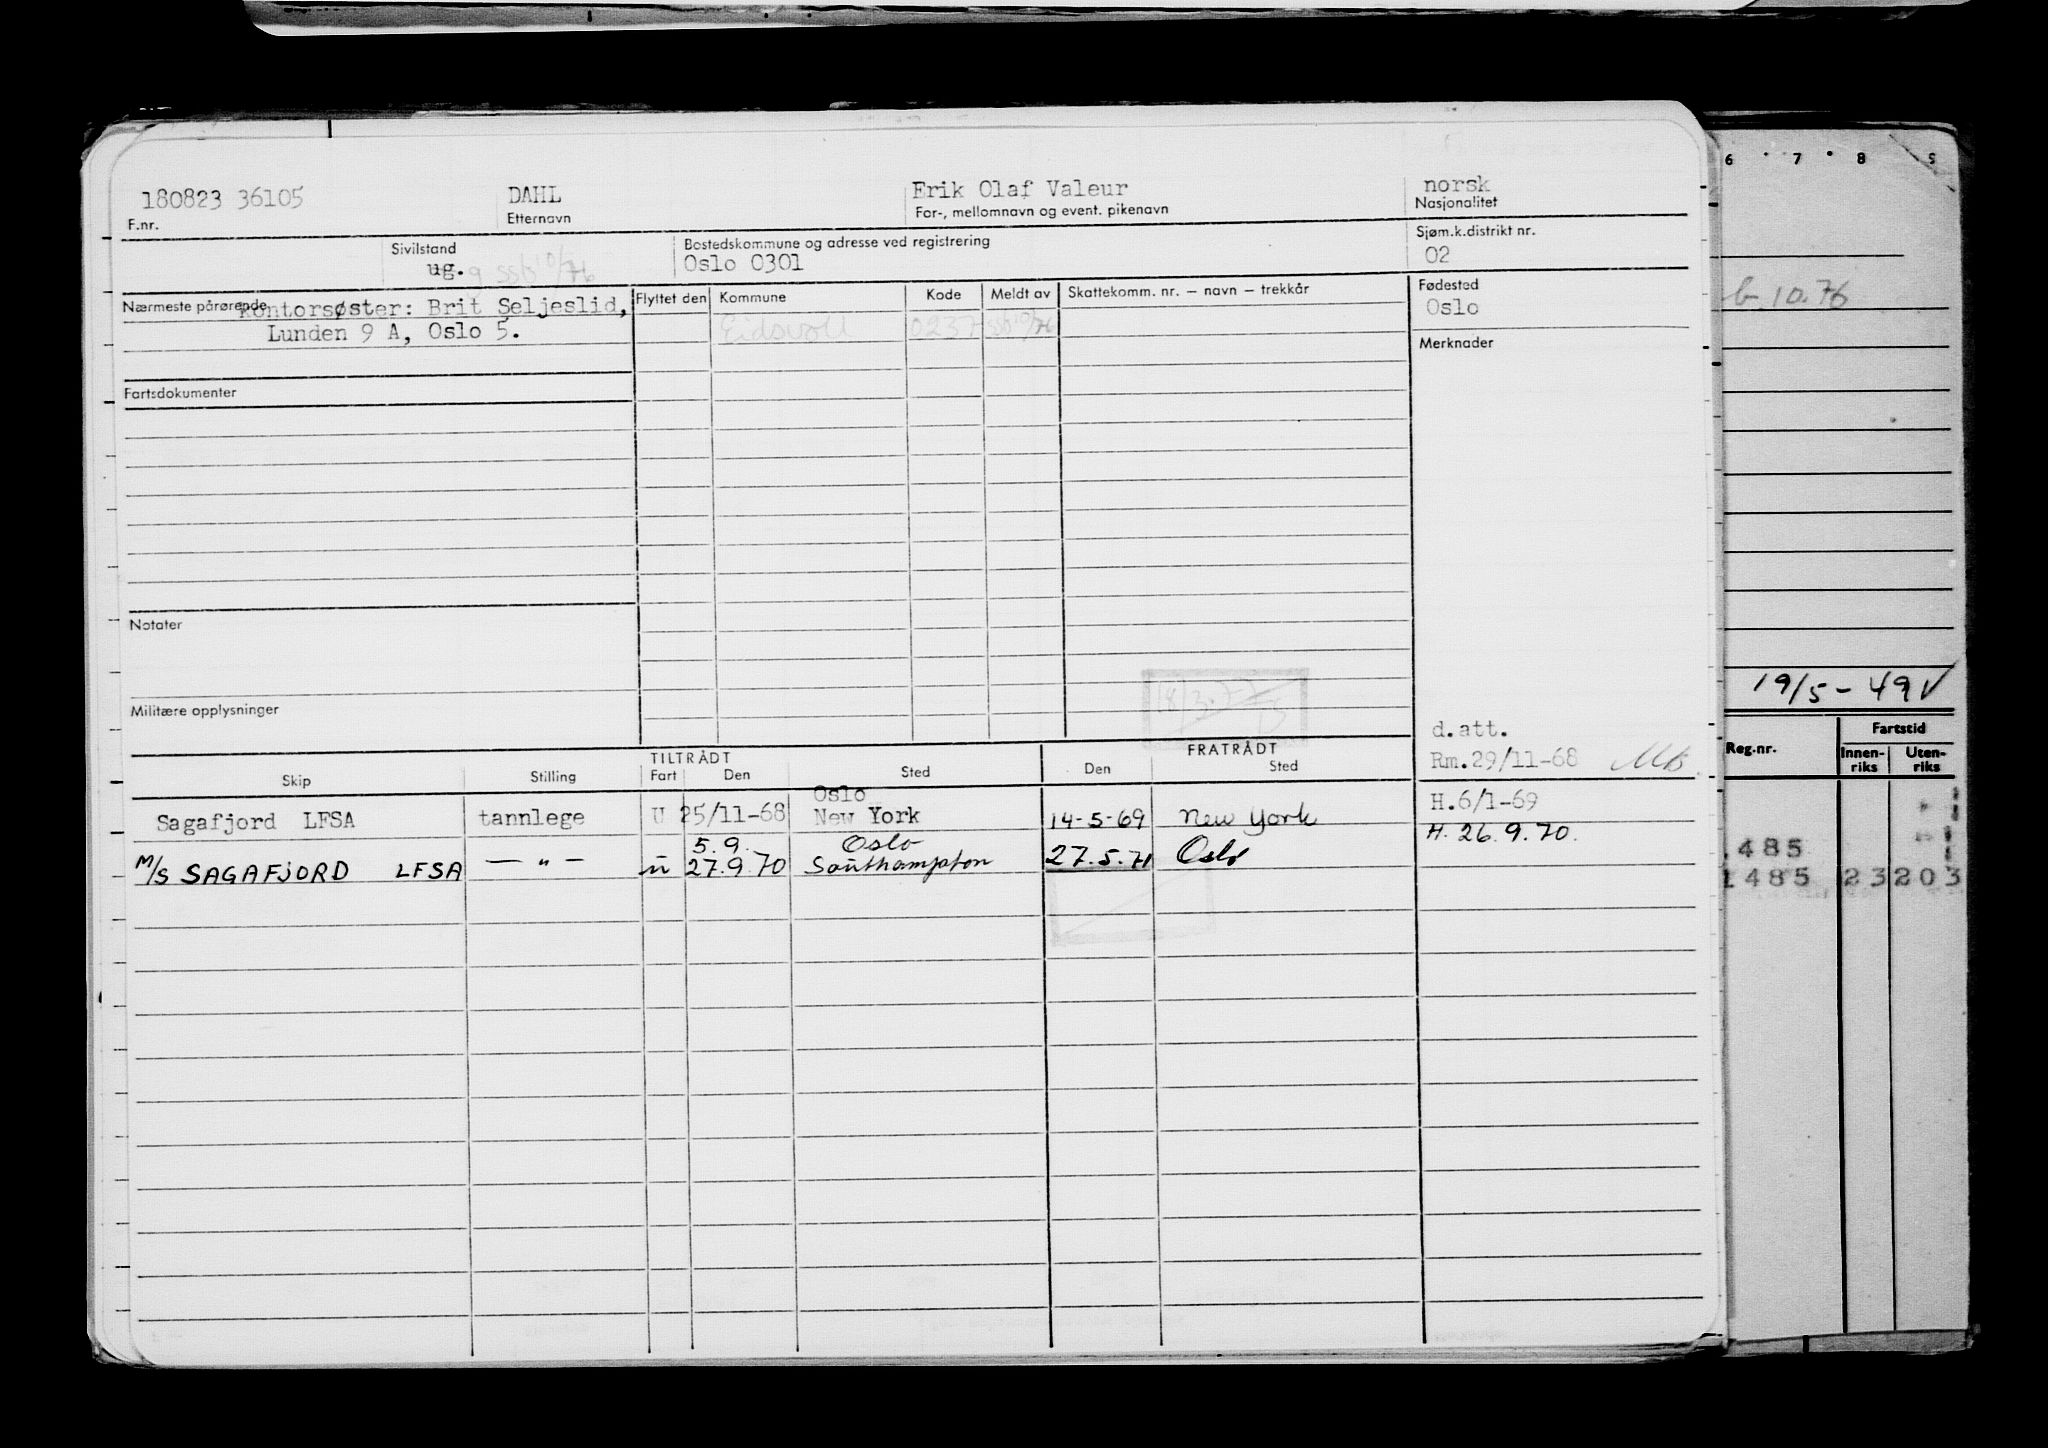 180823 36105 DAHL Erik Olaf Valeur norsk
F.nr. Etternavn For-, mellomnavn og event. pikenavn Nasjonalitet
Sivilstand Bostedskommune og adresse ved registrering Sjøm.k.distrikt nr.
ug. g ssb 10/76 Oslo 0301 02
Nærmeste pårørende Kontorsøster: Brit Seljeslid, Flyttet den Kommune Kode Meldt av Skattekomm. nr. – navn – trekkår Fødested
Lunden 9 A, Oslo 5. Eidsvoll 0237 ssb 10/76 Oslo
Merknader
Fartsdokumenter
Notater
Militære opplysninger
d.att.
TILTRÅDT FRATRÅDT Rm.29/11-68
Skip Stilling Fart Den Sted Den Sted
Oslo
Sagafjord LFSA tannlege U 25/11-68 New York 14-5-69 New York H.6/1-69
5.9. Oslo H. 26.9.70.
M/S SAGAFJORD LFSA — " — u 27.9.70 Southampton 27.5.71 Oslo
6 7 8 9
10.76
19/5-49
Reg.nr. Fartstid
Innen-riks Uten-riks
485
1485 23 203